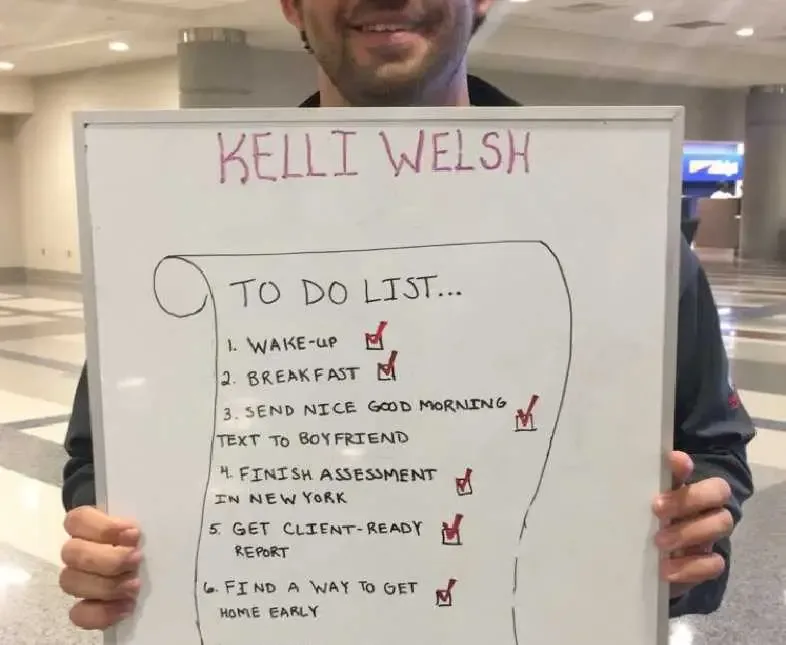 KELLI WELSH
TO DO LIST...
1. WAKE-UP
2. BREAKFAST
3. SEND NICE GOOD MORNING
TEXT TO BOYFRIEND
4. FINISH ASSESSMENT
IN NEW YORK
5. GET CLIENT-READY
REPORT
6. FIND A WAY TO GET
HOME EARLY